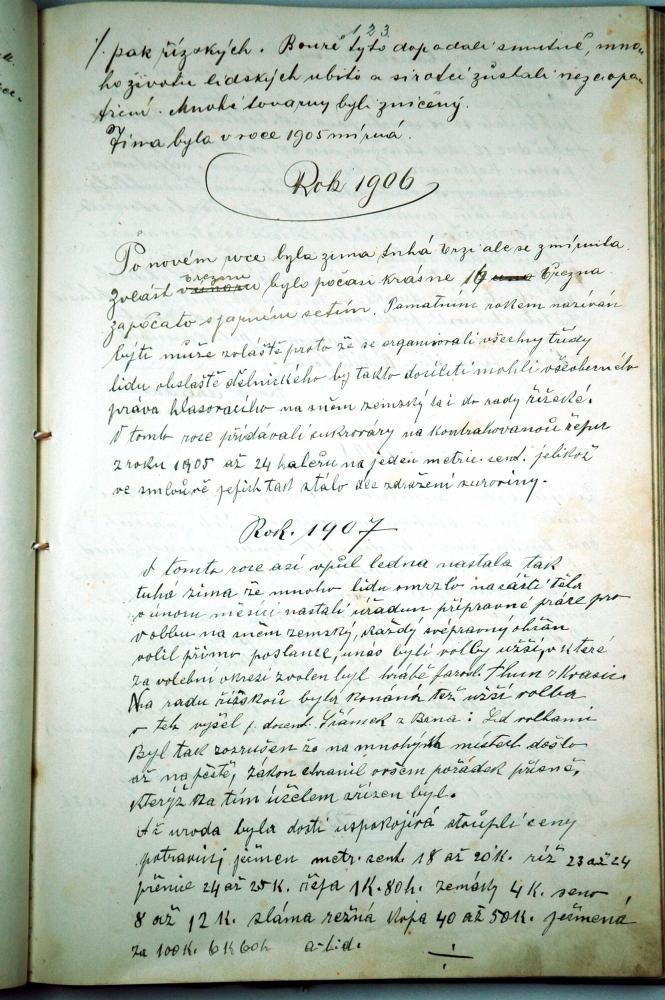 123
•/. pak řízských. Bouře tyto dopadali smutně, mno-
ho životu lidských ubito a sirotci zůstali nezaopa-
třeni. Mnohé továrny byli zničeny.
Zima byla v roce 1905 mírná.
Rok 1906
Po novém roce byla zima tuhá brzi ale se zmírnila.
Zvlášt v březnu bylo počasí krásné 16 Března
započato s jarním setím. Památním rokem nazíván
býti může zvláště proto že se organisovali všechny třídy
lidu obzláště dělnického by takto docíleti mohli všeobecného
práva hlasovacího na sněm zemský ta i do rady říšské.
V tomto roce přidávali cukrováry na kontrahovanou řepu
z roku 1905 až 24 haleřu na jeden metric. cent. jelikož
ve smlouvě jejich tak stálo dle zdražení suroviny.
Rok. 1907
V tomto roce asi vpůl ledna nastala tak
tuhá zima že mnoho lidu omrzlo na části těla
v únoru měsíci nastali úřadum přípravné práce pro
volbu na sněm zemský, každý svéprávný občan
volil přímo poslance, unás byli volby užší, v které
za volební okresí zvolen byl hrábě Jarosl. Thun z Kvasic.
Na radu říšskou byla konána též užší volba
v téb vyšel p. docent. Šrámek z Brna: Lid volbami
Byl tak rozrušen že na mnohých místech došlo
až na pěstě, zákon chránil ovšem pořádek přísně,
kterýž za tím účelem zřízen byl.
Až uroda byla dosti uspokojivá stouplí ceny
potravinj ječmen metr. cent. 18 až 20 K. rýž 23 až 24
pšenice 24 až 25 K. řepa 1 K. 80 h. zemáky 4 K. seno
8 až 12 K. sláma režná kopa 40 až 50 K. ječmená
za 100 K. 6 K 60 h a. t. d.